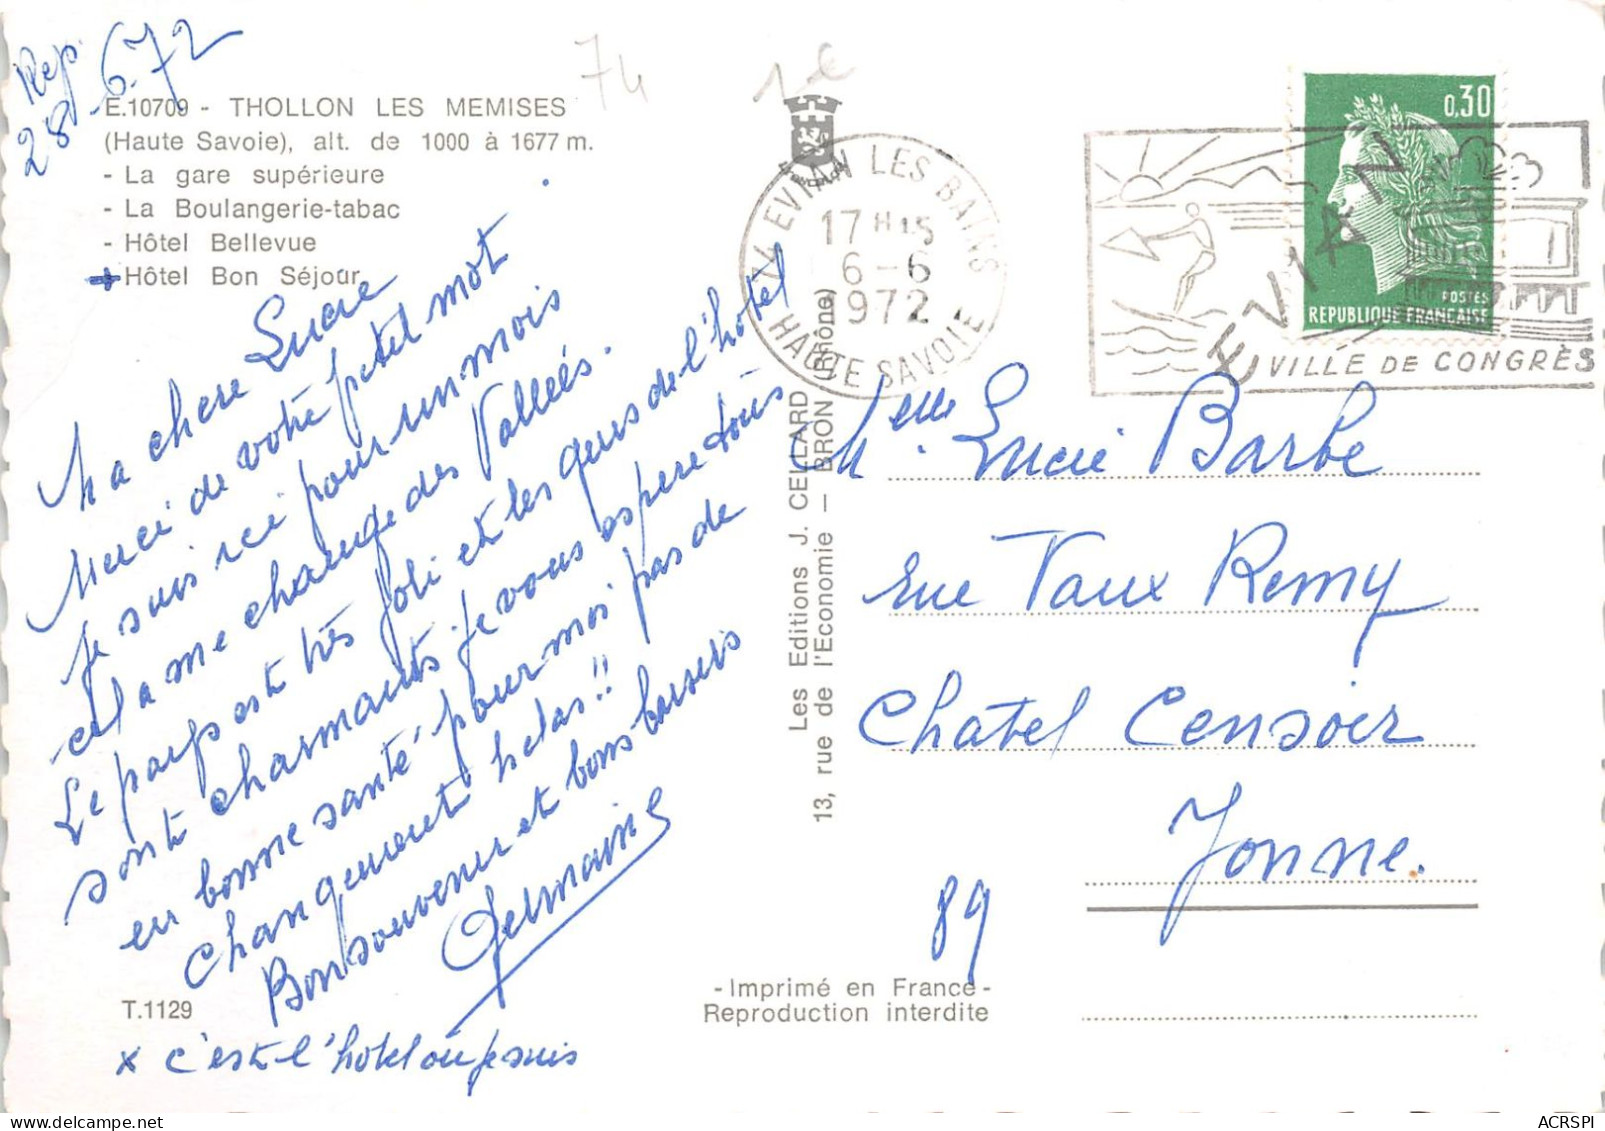 Rep.
28.6.72
74
1 €
E.10709 - THOLLON LES MEMISES
(Haute Savoie), alt. de 1000 à 1677 m.
- La gare supérieure
- La Boulangerie-tabac
- Hôtel Bellevue
- Hôtel Bon Séjour
Ma chere Lucie
Merci de votre petit mot
Je suis ici pour un mois
cela me change des Vallées.
Le pays est très joli et les gens de l'hotel
sont charmants. je vous espere tous
en bonne santé pour moi pas de
changement helas!!
Bon souvenir et bons baisers
Germaine
T.1129
x c'est l'hotel ou je suis
74 EVIAN LES BAINS
17 H 15
6-6
1972
HAUTE SAVOIE
EVIAN
VILLE DE CONGRÈS
0,30
POSTES
REPUBLIQUE FRANCAISE
Les Editions J. CELLARD
13, rue de l'Economie - BRON (Rhône)
Melle Lucie Barbe
rue Vaux Remy
Chatel Censoir
Yonne.
89
- Imprimé en France -
Reproduction interdite
ACRSPI